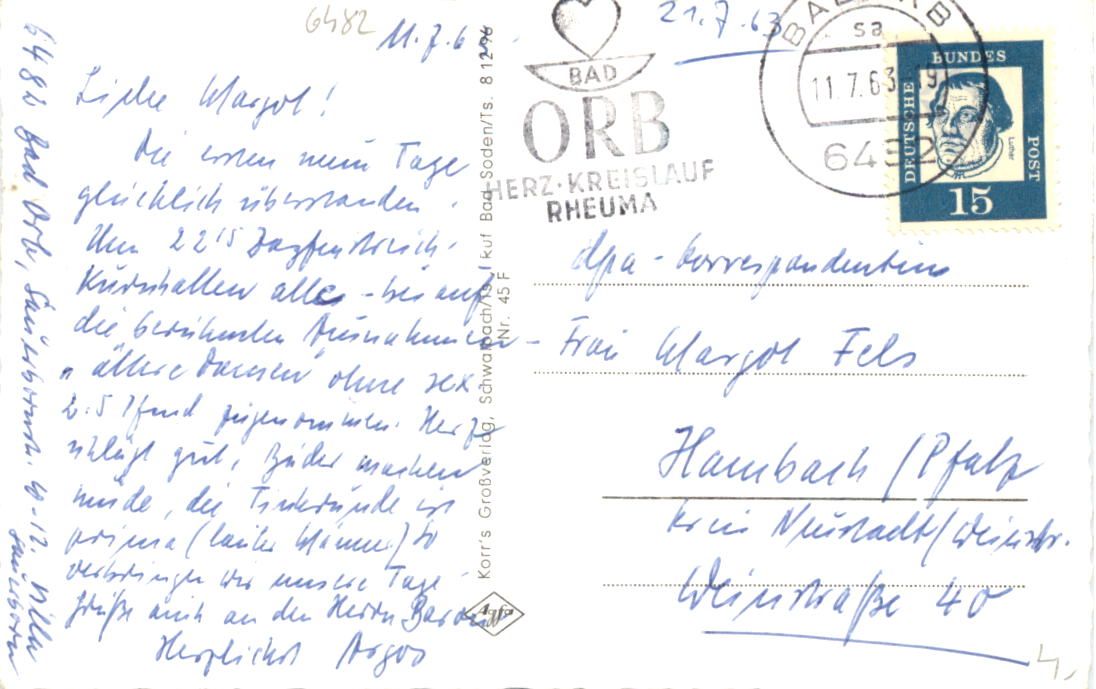 6482
11.7.6
21.7.63
Liebe Margot!
Die ersten neun Tage
glücklich überstanden.
Um 22 15
alles - bis auf
die berühmten Ausnahmen -
" ältere Damen ohne Sex
2.5 Pfund zugenommen. Herz
schlägt gut, Bäder machen
müde, die Tischrunde ist
prima (lauter Männer) So
verbringen wir unsere Tage
Grüße auch an den Herrn Baron
Herzlichst Argos
6482 Bad Orb, Sauerbornstr. 10-12. Villa
Sauerborn
Korr's Großverlag, Schwalbach/Ts., Ruf Bad Soden/Ts. 8 12 96
Nr. 45 F
Agfa
BAD
ORB
HERZ·KREISLAUF
RHEUMA
BAD ORB
sa
11.7.63-19
6482
DEUTSCHE
BUNDES
POST
Luther
15
dpa-Korrespondentin
Frau Margot Fels
Hambach/Pfalz
Kreis Neustadt/Weinstr.
Weinstraße 40
4,